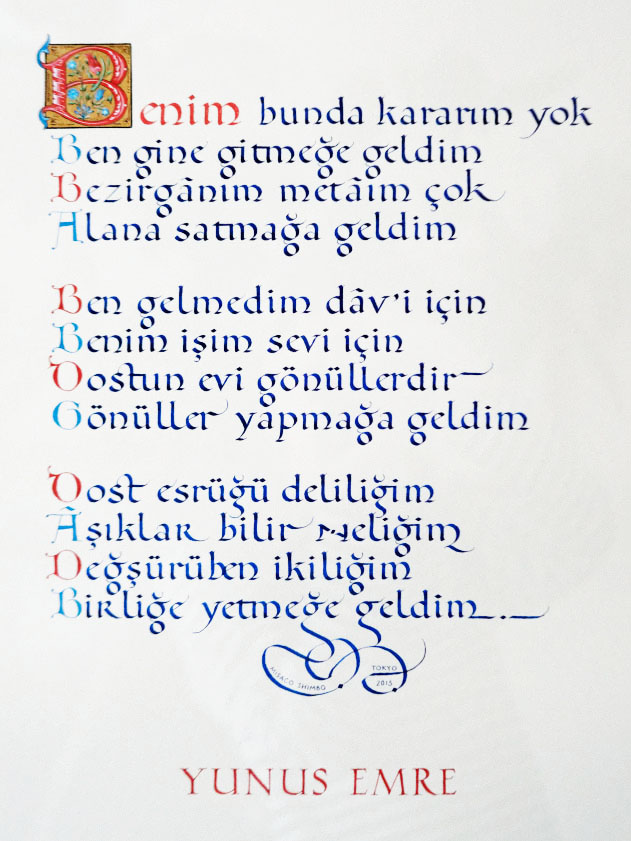 Benim bunda kararım yok
Ben gine gitmeğe geldim
Bezirgânım metâim çok
Alana satmağa geldim
Ben gelmedim dâv'i için
Benim işim sevi için
Dostun evi gönüllerdir
Gönüller yapmağa geldim
Dost esrüğü deliliğim
Âşıklar bilir neliğim
Değşürüben ikiliğim
Birliğe yetmeğe geldim
MISACO SHIMBO
TOKYO
2013
YUNUS EMRE